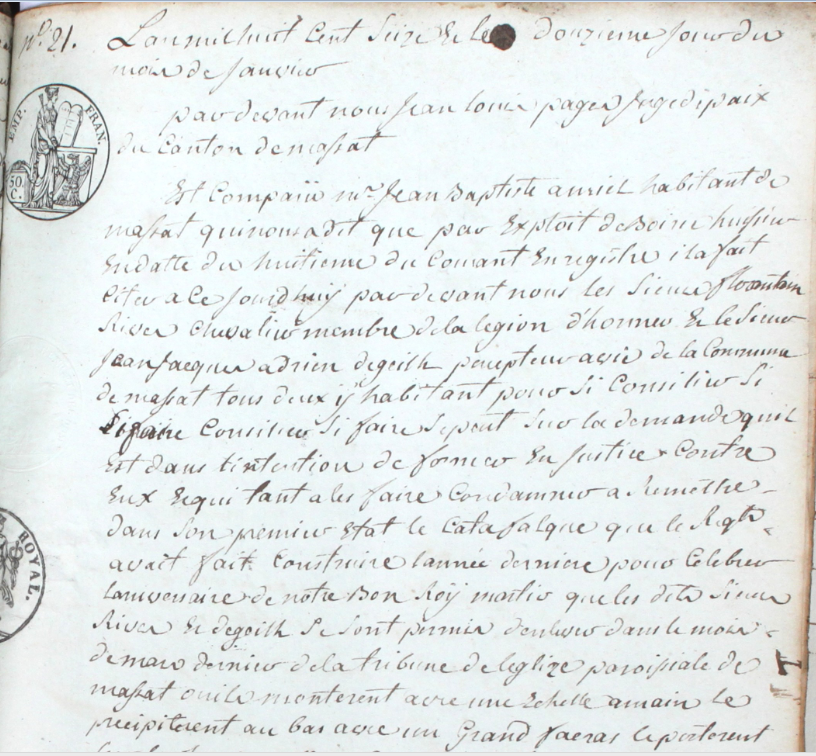 n.o 21.
L'an mil huit Cent Seize & le douzieme Jour du
mois de Janvier
par devant nous Jean louis pages Juge di paix
du Canton de massat
EMP. FRAN.
50. C.
Est Comparü mr. Jean Baptiste auriel habitant de
massat qui nous a dit que par Exploit de huissier
En datte du huitieme du Courant Enregistré il a fait
Citer a Ce Jourdhuy par devant nous les Sieurs
River Chevalier membre de la legion d'honneur & le Sieur
Jean Jacques adrien degeilh percepteur de la Commune
de massat tous deux y habitant pour Si Consilier Si
Si faire Consilier Si faire Se peut Sur la demande quil
Est dans lintention de former En Justice Contre
Eux & qui tant a les faire Condamner a Remettre
dans Son premier Etat le Catafalque que le Rqt
avait fait Construire lannée derniere pour Celebrer
laniversaire de notre Bon Roÿ martir que les dits Sieurs
River & degeilh Se Sont permis denlever dans le mois
de mars dernier de la tribune de leglize paroissiale de
massat ou ils monterent avec une Echelle a main le
precipiterent au bas avec un Grand facras le porterent
ROYAL.